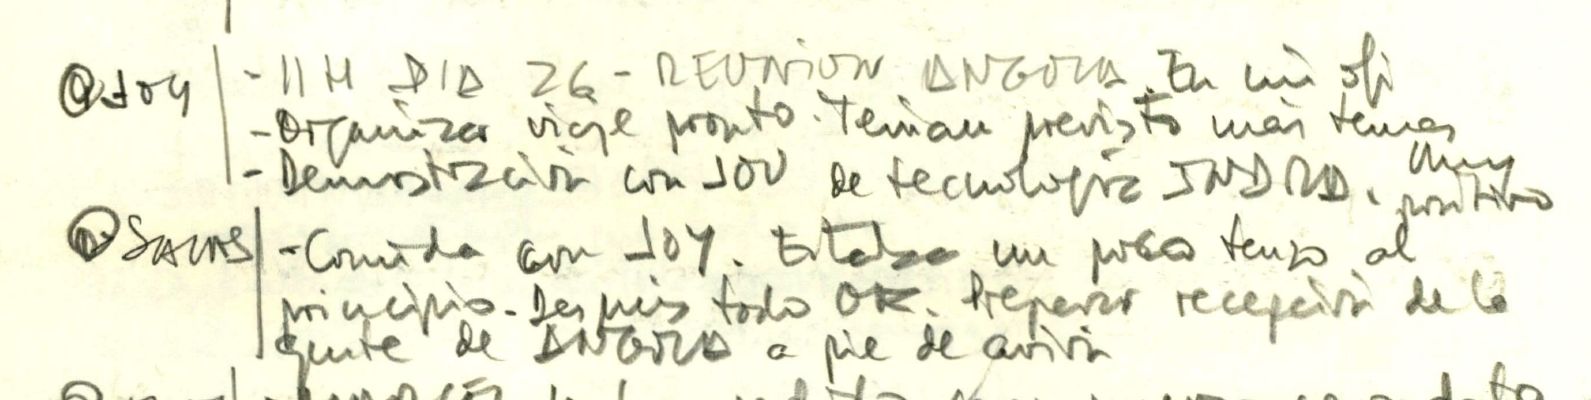 JOY - 11 H DIA 26 - REUNION ANGOLA. En mi ofi
- Organizar viaje pronto. Tenian previsto más temas
- Demostración con JOY de tecnología INDRA. Muy positivo
SALAS - Comida con JOY. Estaba un poco tenso al
principio. Después todo OK. Preparar recepción de la
gente de ANGOLA a pie de avión